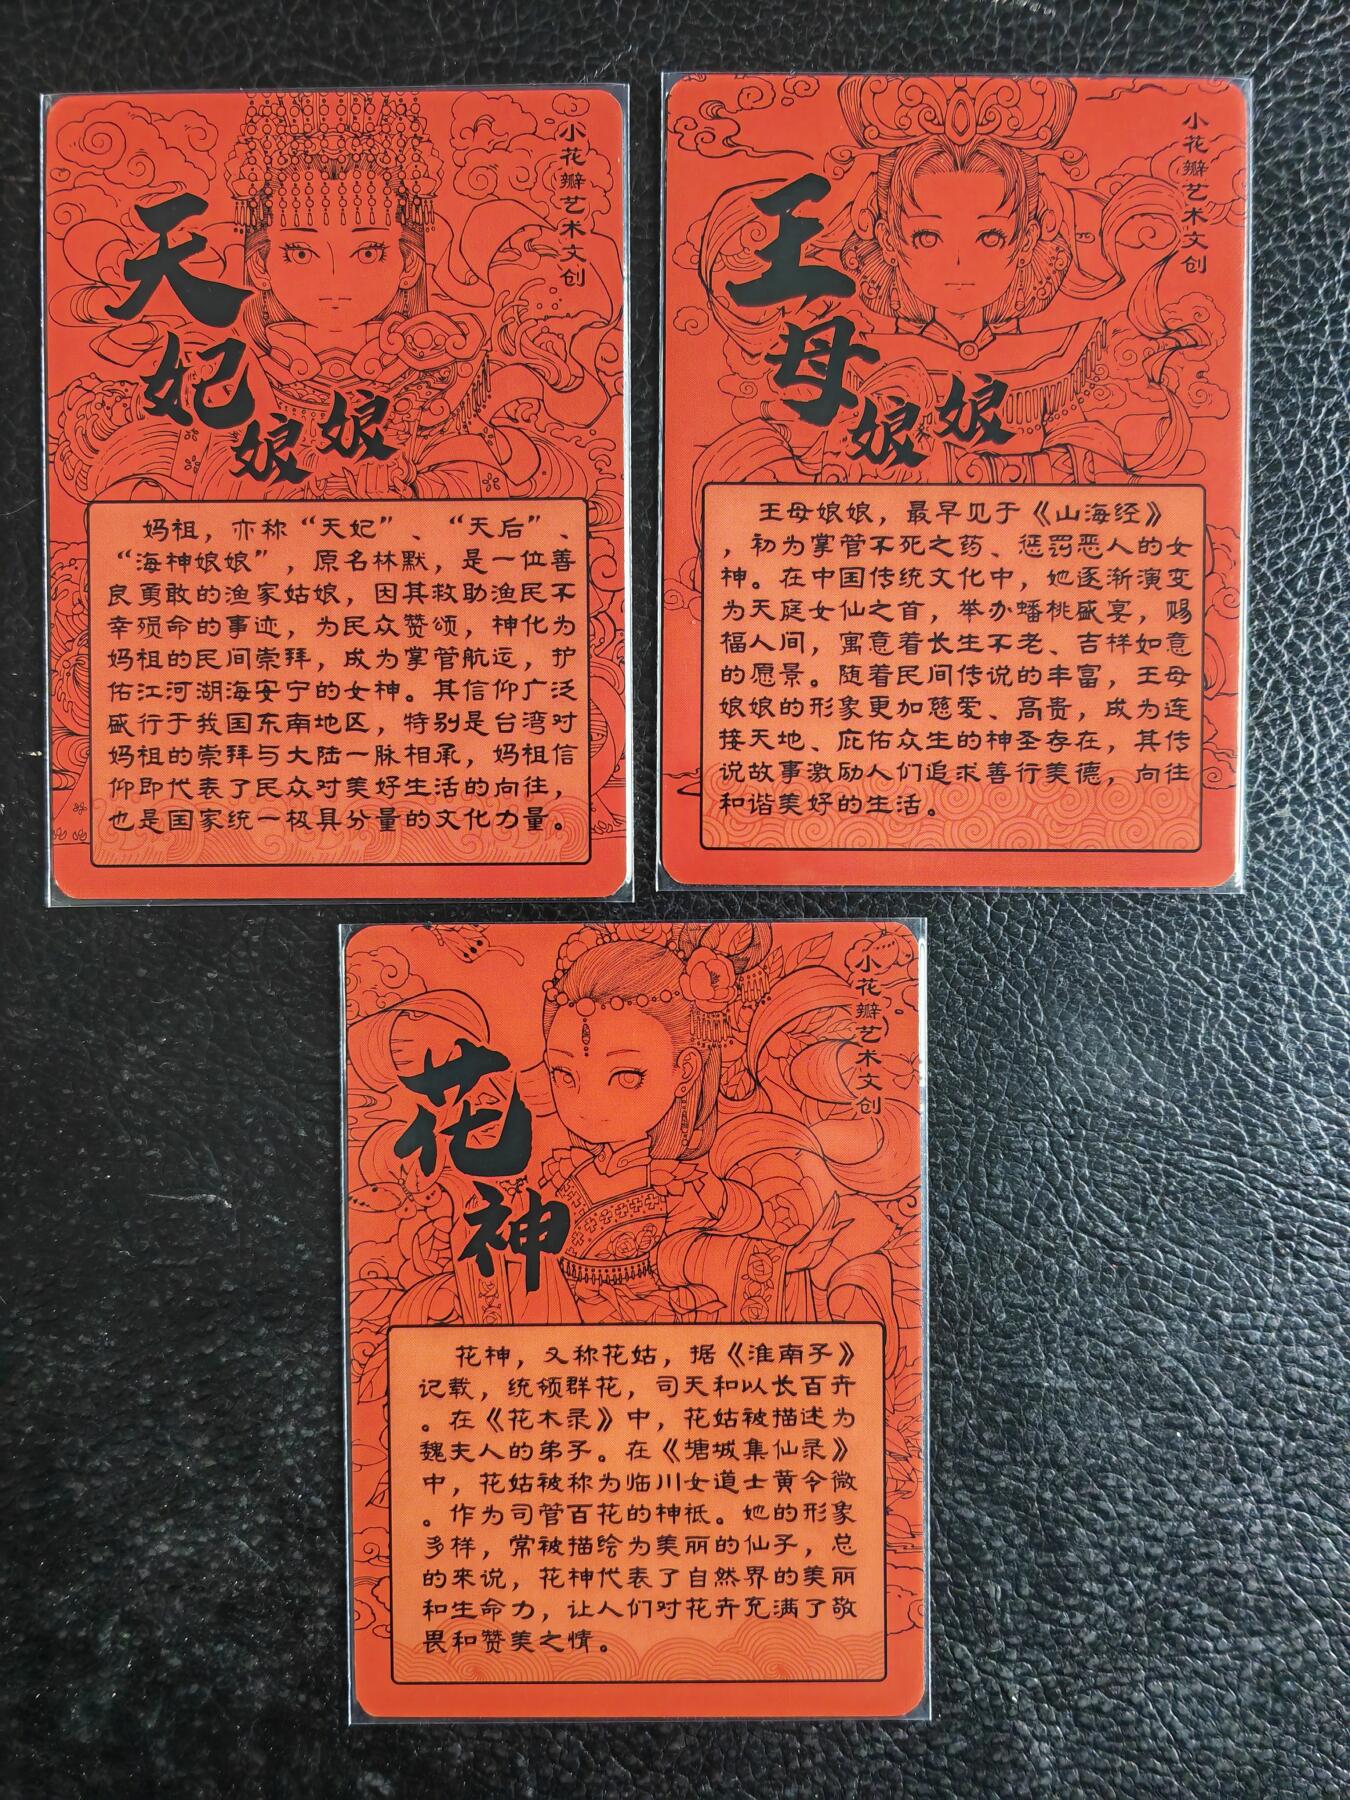 天妃娘娘
小花瓣艺术文创
妈祖，亦称“天妃”、“天后”、
“海神娘娘”，原名林默，是一位善
良勇敢的渔家姑娘，因其救助渔民不
幸殒命的事迹，为民众赞颂，神化为
妈祖的民间崇拜，成为掌管航运，护
佑江河湖海安宁的女神。其信仰广泛
盛行于我国东南地区，特别是台湾对
妈祖的崇拜与大陆一脉相承，妈祖信
仰即代表了民众对美好生活的向往，
也是国家统一极具分量的文化力量。
王母娘娘
小花瓣艺术文创
王母娘娘，最早见于《山海经》
，初为掌管不死之药、惩罚恶人的女
神。在中国传统文化中，她逐渐演变
为天庭女仙之首，举办蟠桃盛宴，赐
福人间，寓意着长生不老、吉祥如意
的愿景。随着民间传说的丰富，王母
娘娘的形象更加慈爱、高贵，成为连
接天地、庇佑众生的神圣存在，其传
说故事激励人们追求善行美德，向往
和谐美好的生活。
花神
小花瓣艺术文创
花神，又称花姑，据《淮南子》
记载，统领群花，司天和以长百卉
。在《花木录》中，花姑被描述为
魏夫人的弟子。在《塘城集仙录》
中，花姑被称为临川女道士黄令微
。作为司管百花的神祗。她的形象
多样，常被描绘为美丽的仙子，总
的来说，花神代表了自然界的美丽
和生命力，让人们对花卉充满了敬
畏和赞美之情。